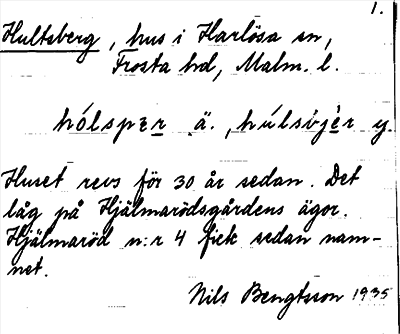 1.
Hultsberg, hus i Harlösa sn,
Frosta hd, Malm. l.
hólspær ä., húlsbjèr y.
Huset revs för 30 år sedan. Det
låg på Hjälmarödsgårdens ägor.
Hjälmaröd n:r 4 fick sedan nam-
net.
Nils Bengtsson 1935